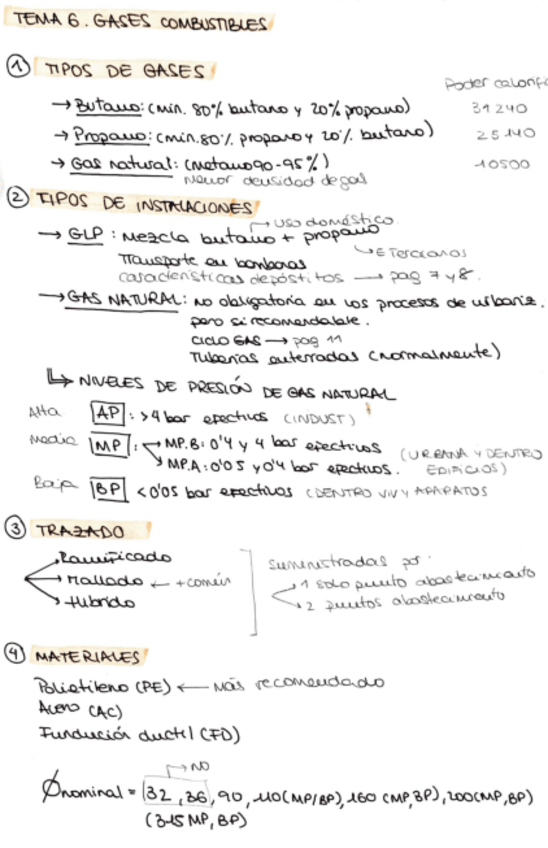 TEMA 6. GASES COMBUSTIBLES
① TIPOS DE GASES
Poder calorífi
→ Butano: (min. 80% butano y 20% propano) 31240
→ Propano: (min. 80% propano y 20% butano) 25140
→ Gas natural: (metano 90-95%) 10500
Menor densidad de gas
② TIPOS DE INSTALACIONES
→ uso doméstico
→ GLP: Mezcla butano + propano
→ E Terciarios
Transporte en bombonas
características depósitos → pag 7 y 8.
→ GAS NATURAL: no obligatoria en los procesos de urbaniz.
pero si recomendable.
Ciclo GAS → pag 11
Tuberías enterradas (normalmente)
↳ NIVELES DE PRESIÓN DE GAS NATURAL
Alta AP : >4 bar efectivos (INDUST)
Media MP : → MP.B: 0'4 y 4 bar efectivos (URBANA Y DENTRO
→ MP.A: 0'05 y 0'4 bar efectivos. EDIFICIOS)
Baja BP <0'05 bar efectivos (DENTRO VIV Y APARATOS
③ TRAZADO
Ramificado
Mallado ← + común
Híbrido
suministradas por:
→ 1 solo punto abastecimiento
→ 2 puntos abastecimiento
④ MATERIALES
Polietileno (PE) ← Más recomendado
Acero (AC)
Fundución ductil (FD)
→ NO
Ø nominal = 32, 36, 90, 110 (MP/BP), 160 (MP, BP), 200 (MP, BP)
(315 MP, BP)